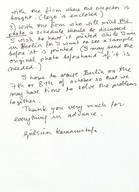 with the firm when the projector is
bought. (Logo is enclosed)
5) With the firm who will print the
photo a schedule should be discussed
I wish to have it printed while I am
in Berlin for I want to see a sample
before it is printed (I may send the
original photo beforehand if it is
needed)
I hope to arrive Berlin on the
7th or 8th of October so that we
may have time to solve the problems
together.
Thank you very much for
everything in advance.